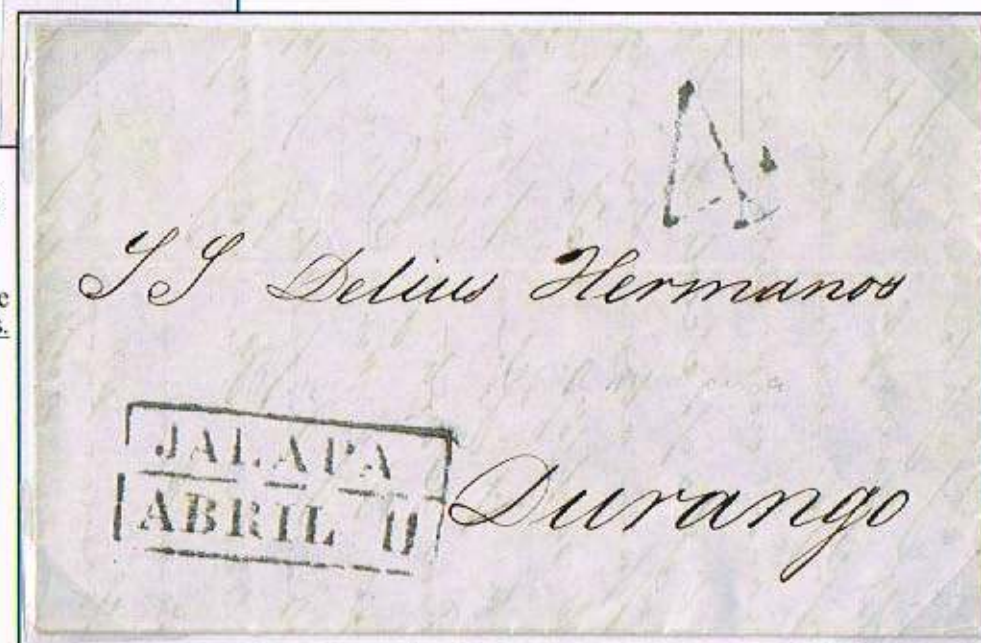 A.
SS Delius Hermanos
JALAPA
ABRIL 11
Durango
e
s.